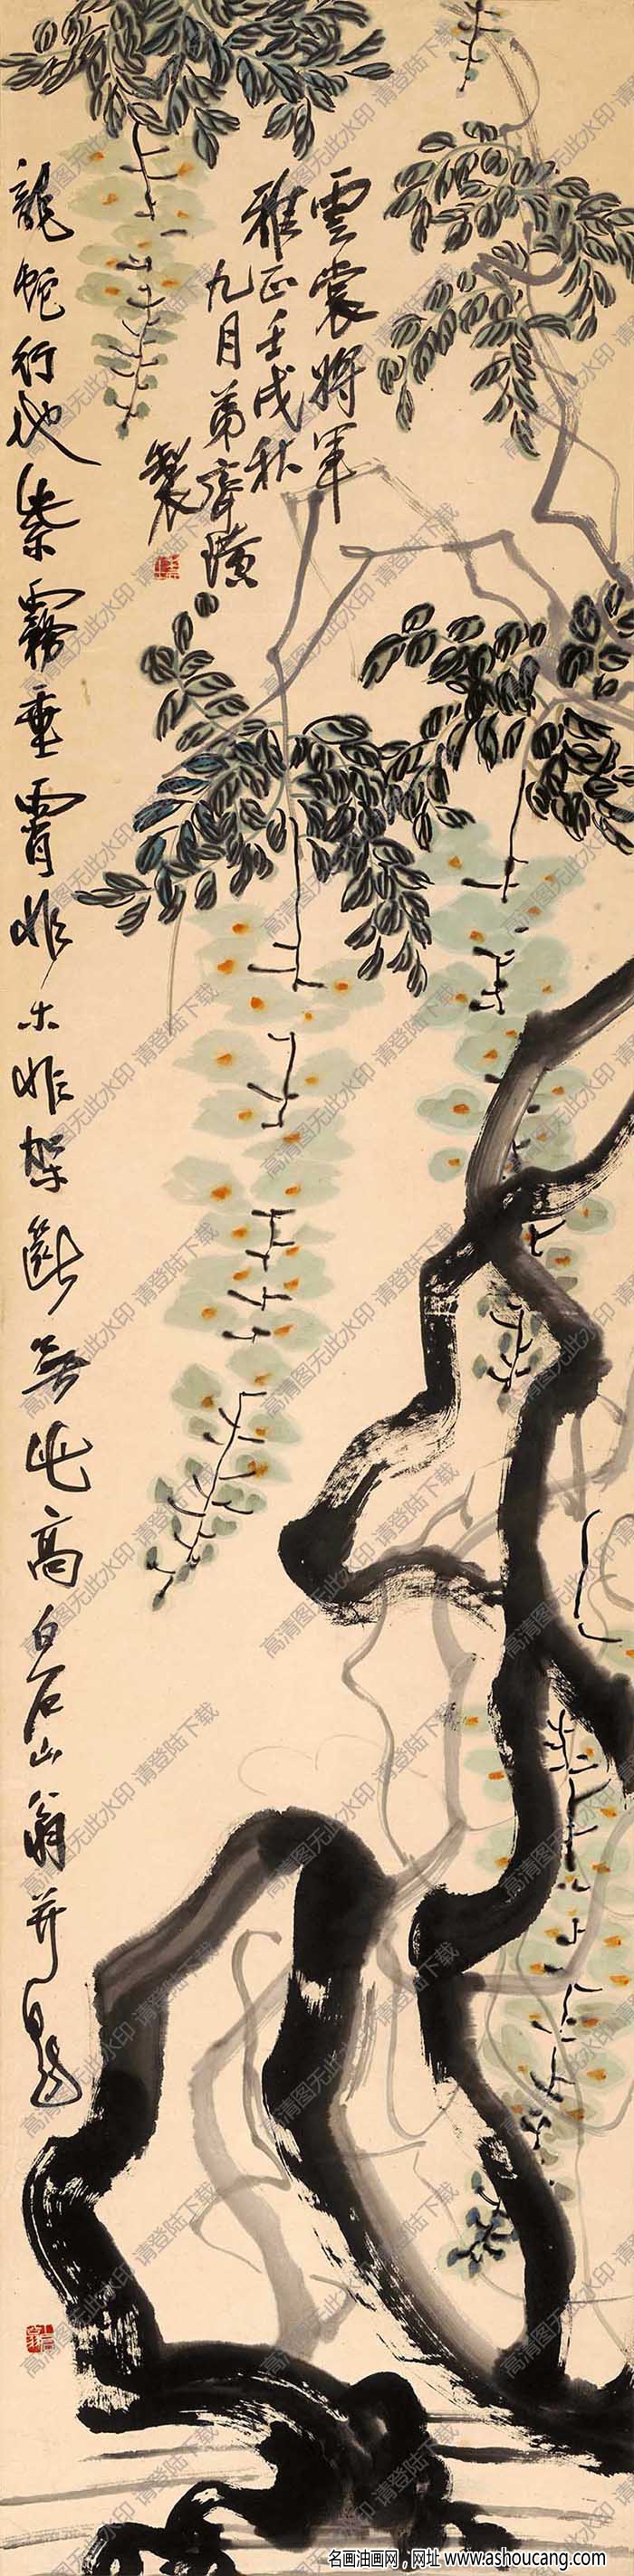 雲裳將軍
雅正壬戌秋
九月弟齊璜
製
龍蛇行地紫霧垂霄非木非架斷無此高白石山翁并題
高清图无此水印 请登陆下载
名画油画网，网址 www.ashoucang.com